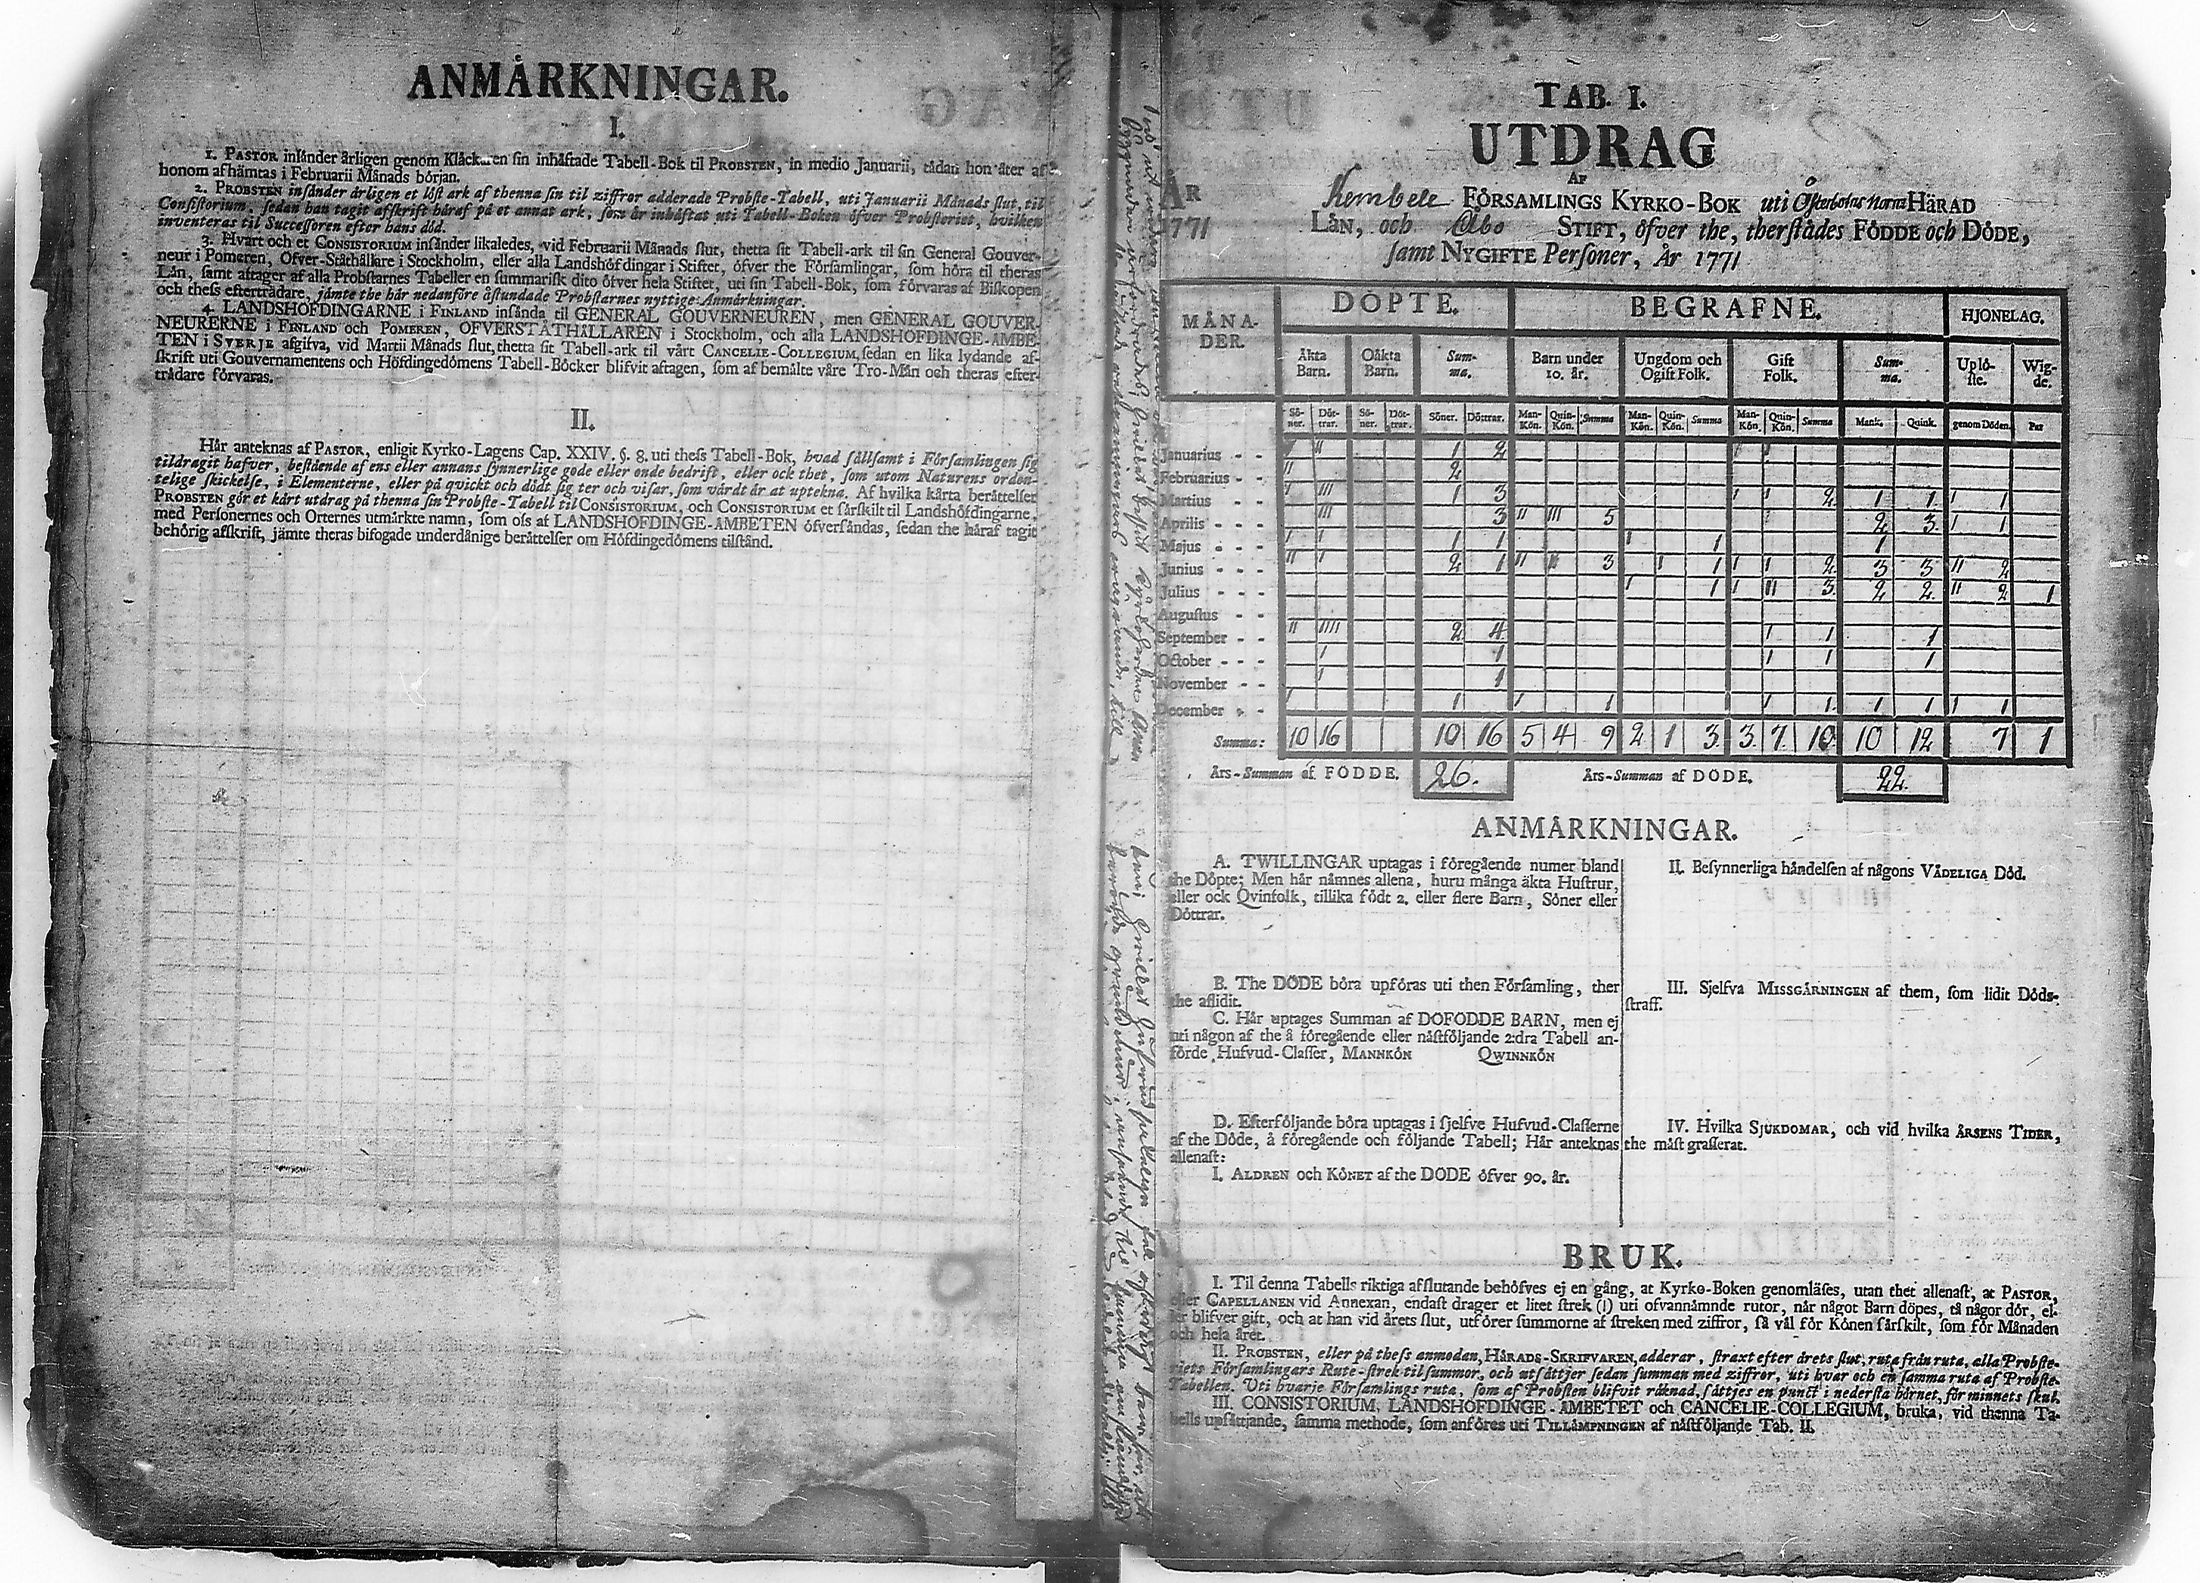 ANMÅRKNINGAR.
I.
1. PASTOR insånder årligen genom Klåckaren sin inhåftade Tabell-Bok til PROBSTEN, in medio Januarii, tådan hon åter af
honom afhämtas i Februarii Månads början.
2. PROBSTEN insånder årligen et löst ark af thenna sin til ziffror adderade Probste-Tabell, uti Januarii Månads slut, til
Consistorium, sedan han tagit afskrift håraf på et annat ark, som år inhåftat uti Tabell-Boken öfver Probsteriet, hvilken
inventeras til Successoren efter hans död.
3. Hvart och et CONSISTORIUM insånder likaledes, vid Februarii Månads slut, thetta sit Tabell-ark til sin General Gouver-
neur i Pomeren, Öfver-Ståthållare i Stockholm, eller alla Landshöfdingar i Stiftet, öfver the Församlingar, som höra til theras
Län, samt aftager af alla Probstarnes Tabeller en summarisk dito öfver hela Stiftet, uti sin Tabell-Bok, som förvaras af Biskopen
och thess efterträdare, jämte the här nedanföre åstundade Probstarnes nyttige Anmårkningar.
4. LANDSHÖFDINGARNE i FINLAND insånda til GENERAL GOUVERNEUREN, men GENERAL GOUVER-
NEURERNE i FINLAND och POMEREN, ÖFVERSTÅTHÅLLAREN i Stockholm, och alla LANDSHÖFDINGE-ÅMBE-
TEN i SVERJE afgifva, vid Martii Månads slut, thetta sit Tabell-ark til vårt CANCELIE-COLLEGIUM, sedan en lika lydande af-
skrift uti Gouvernamentens och Höfdingedömens Tabell-Böcker blifvit aftagen, som af bemälte våre Tro-Mån och theras efter-
trådare förvaras.
II.
Hår anteknas af PASTOR, enligit Kyrko-Lagens Cap. XXIV. §. 8. uti thess Tabell-Bok, hvad sållsamt i Församlingen sig
tildragit hafver, bestående af ens eller annans synnerlige gode eller onde bedrift, eller ock thet, som utom Naturens orden-
telige skickelse, i Elementerne, eller på qvickt och dödt sig ter och visar, som vårdt är at uptekna. Af hvilka kårta beråttelser
PROBSTEN gör et kårt utdrag på thenna sin Probste-Tabell til CONSISTORIUM, och CONSISTORIUM et sårskilt til Landshöfdingarne,
med Personernes och Orternes utmårkte namn, som oss af LANDSHÖFDINGE-ÅMBETEN öfversåndas, sedan the håraf tagit
behörig afskrift, jämte theras bifogade underdånige beråttelser om Höfdingedömens tilstånd.
TAB. I.
UTDRAG
AF
ÅR Kembele FÖRSAMLINGS KYRKO-BOK uti Österbotns Norra HÄRAD
1771 LÄN, och Åbo STIFT, öfver the, therstådes FÖDDE och DÖDE,
samt NYGIFTE Personer, År 1771
MÅNA- DÖPTE. BEGRAFNE. HJONELAG.
DER.
Äkta Oåkta Sum- Barn under Ungdom och Gift Sum- Uplö- Wig-
Barn. Barn. ma. 10. år. Ogift Folk. Folk. ma. ste. de.
Sö- Döt- Sö- Döt- Söner. Döttrar. Man- Quin- Summa Man- Quin- Summa Man- Quin- Summa Mank. Quink. genom Döden. Par
ner. trar. ner. trar. Kön. Kön. Kön. Kön. Kön. Kön.
Januarius - - I II 1 2
Februarius - - II 2
Martius - - - I III 1 3 I I 2 1 1 I 1
Aprilis - - - III 3 II III 5 2 3 I 1
Majus - - - I I 1 1 I 1 1
Junius - - - II I 2 1 II II 3 I 1 I I 2 3 3 II 2
Julius - - - I 1 I II 3 2 2 II 2 1
Augustus - -
September - - II IIII 2 4 I 1 1
October - - - I 1 I 1 1
November - - I 1
December - - I 1 I 1 I 1 1 1 I 1
Summa: 10 16 10 16 5 4 9 2 1 3 3 7 10 10 12 7 1
Års-Summan af FÖDDE. 26. Års-Summan af DÖDE. 22.
ANMÅRKNINGAR.
A. TWILLINGAR uptagas i föregående numer bland
the Döpte; Men hår nåmnes allena, huru många äkta Hustrur,
eller ock Qvinfolk, tillika födt 2. eller flere Barn, Söner eller
Döttrar.
B. The DÖDE böra upföras uti then Församling, ther
the aflidit.
C. Hår uptages Summan af DÖFÖDDE BARN, men ej
uti någon af the å föregående eller nåstföljande 2:dra Tabell an-
förde Hufvud-Classer, MANNKÖN QWINNKÖN
D. Efterföljande böra uptagas i sjelfve Hufvud-Classerne
af the Döde, å föregående och följande Tabell; Hår anteknas
allenast:
I. ÅLDREN och KÖNET af the DÖDE öfver 90. år.
II. Besynnerliga håndelsen af någons VÅDELIGA Död.
III. Sjelfva MISSGÅRNINGEN af them, som lidit Döds-
straff.
IV. Hvilka SJUKDOMAR, och vid hvilka ÅRSENS TIDER,
the måst grasserat.
BRUK.
I. Til denna Tabells riktiga afslutande behöfves ej en gång, at Kyrko-Boken genomläses, utan thet allenast, at PASTOR,
eller CAPELLANEN vid Annexan, endast drager et litet strek (I) uti ofvannämnde rutor, når något Barn döpes, tå någor dör, el-
ler blifver gift, och at han vid årets slut, utförer summorne af streken med ziffror, så vål för Könen sårskilt, som för Månaden
och hela året.
II. PROBSTEN, eller på thess anmodan, HÅRADS-SKRIFVAREN, adderar, straxt efter årets slut, ruta från ruta, alla Probste-
riets Församlingars Rute-strek-tilsummor, och utsåttjer sedan summan med ziffror, uti hvar och en samma ruta af Probste-
Tabellen. Uti hvarje Församlings ruta, som af Probsten blifvit råknad, såttjes en punct i nedersta hörnet, för minnets skul.
III. CONSISTORIUM, LANDSHÖFDINGE-ÅMBETET och CANCELIE-COLLEGIUM, bruka, vid thenna Ta-
bells upsåttjande, samma methode, som anföres uti TILLÅMPNINGEN af nåstföljande Tab. II.